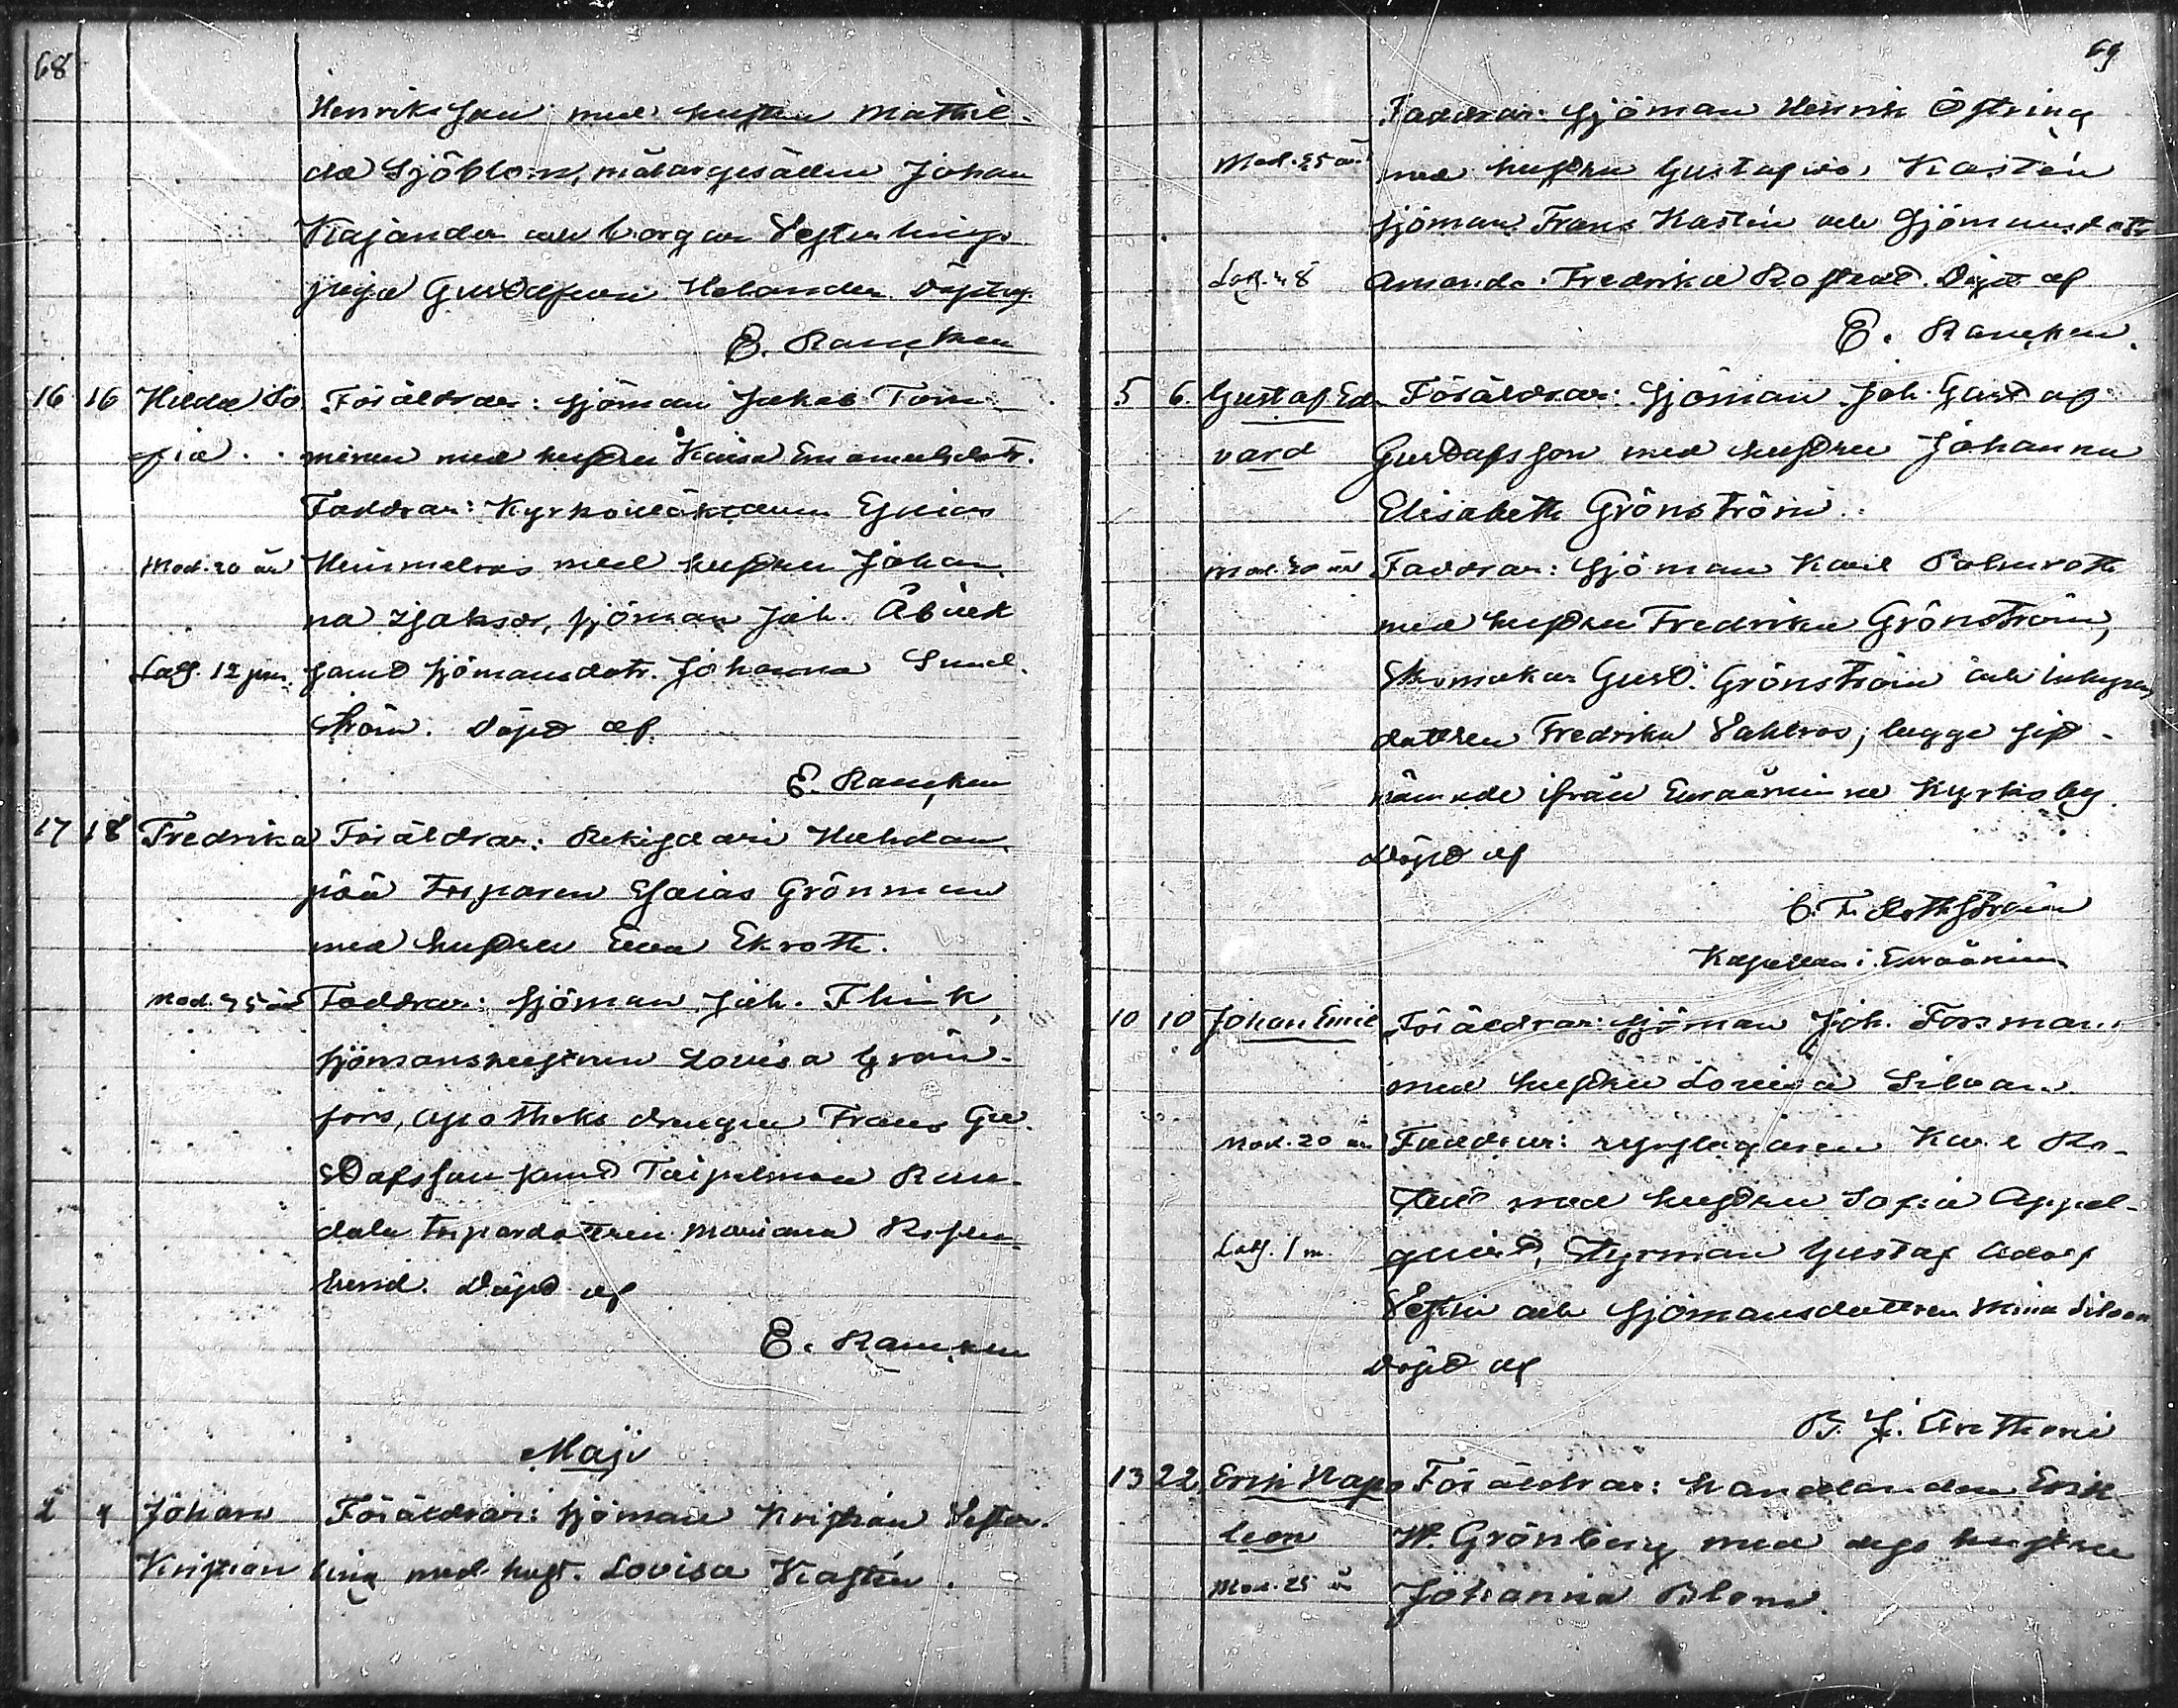 68
Henriksson med hustru Mathil-
da Sjöblom, målargesällen Johan
Kajander och borgar Vesterlings
piga Gustafson Helander. Döpt af
E. Rancken
16 16 Hilda So Föräldrar: sjöman Jakob Tom-
fia minen med hustru Kaisa Emanuelsdotr.
Faddrar: Kyrkoväktaren Esaias
Mod. 20 år Himmelroos med hustru Johan
na Isaksdr, sjöman Joh. Åbierk
Lag. 12 samt sjömansdotr. Johanna Sund
ström. Döpt af
E. Rancken
17 18 Fredrika Föräldrar:
pää Torparen Esaias Grönman
med hustru Eva Ekroth.
Mod. 25 år Faddrar: sjöman Joh. Flink,
sjömanshustrun Lovisa Grön-
fors, apotheks drengen Frans Gu
stafsson samt Taipalmaa Rus-
dala torpardottren Mariana Rosen
lund. Döpt af
E. Rancken
Maji
2 4 Johan Föräldrar: sjöman Kristian Vester-
Kristian ling med hust. Lovisa Kastén.
69
Faddrar: sjöman Henrik Östring
Mod. 25 år med hustru Gustafva Kastén
sjöman Frans Kastén och sjömansdotr
Lag. 48 Amanda Fredrika Rostedt. Döpt af
E. Rancken.
5 6. Gustaf Ed Föräldrar: sjöman Joh. Gustaf
vard Gustafsson med hustru Johanna
Elisabeth Grönström.
Mod. 30 år Faddrar: sjöman Karl Palmroth
med hustru Fredrika Grönström,
Skomakar Gust. Grönström och
dottren Fredrika Vahlroos; begge sist-
nämnde ifrån Euraåminne Kyrkoby.
Döpt af
C. F. Rothström
Kapellan i Euraåminne
10 10 Johan Emil Föräldrar: sjöman Joh. Forsman
med hustru Lovisa Silvan
Mod. 20 år Faddrar: Karl Ro-
stedt med hustru Sofia Appel-
Lag. 1 m. qvist, Styrman Gustaf Adolf
Vestin och sjömansdottren Mina Silvan
Döpt af
B. J. Anthoni
13 22 Erik Napo Föräldrar: handlanden Erik
leon W. Grönberg med dess hustru
Mod. 25 år Johanna Blom.